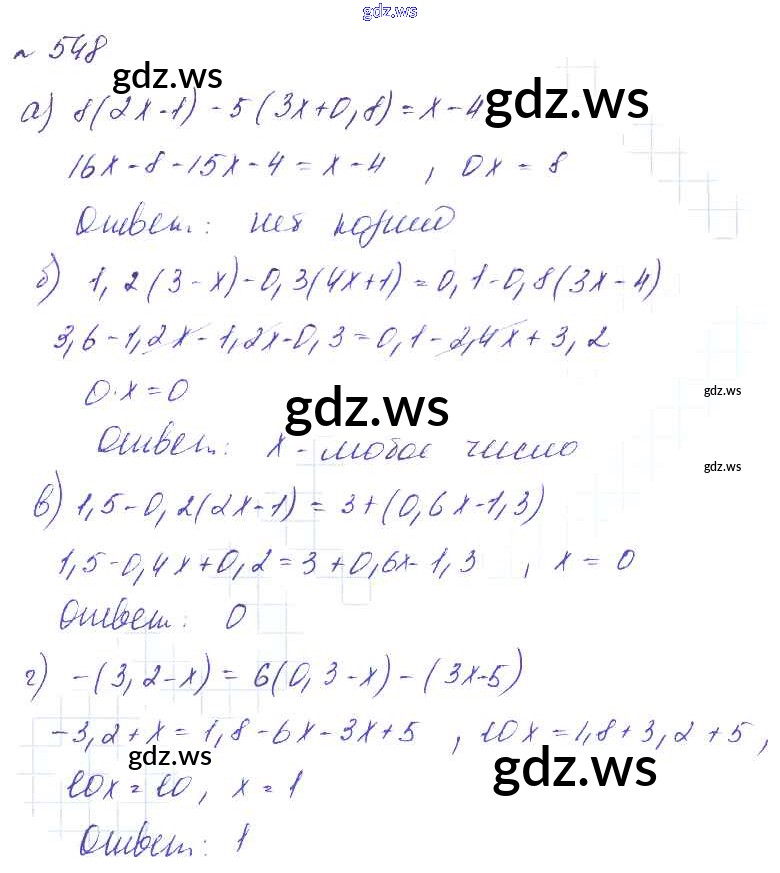 gdz.ws
№ 548
gdz.ws
а) 8(2x-1) - 5(3x+0,8) = x-4
gdz.ws
16x-8-15x-4 = x-4 , 0x = 8
Ответ: нет корней
б) 1,2(3-x)-0,3(4x+1)=0,1-0,8(3x-4)
3,6-1,2x-1,2x-0,3=0,1-2,4x+3,2
0·x=0
gdz.ws
gdz.ws
Ответ: x - любое число
gdz.ws
в) 1,5-0,2(2x-1) = 3+(0,6x-1,3)
1,5-0,4x+0,2=3+0,6x-1,3 , x = 0
Ответ: 0
г) -(3,2-x) = 6(0,3-x)-(3x-5)
-3,2+x = 1,8-6x-3x+5 , 10x=1,8+3,2+5,
gdz.ws
gdz.ws
10x=10, x=1
Ответ: 1